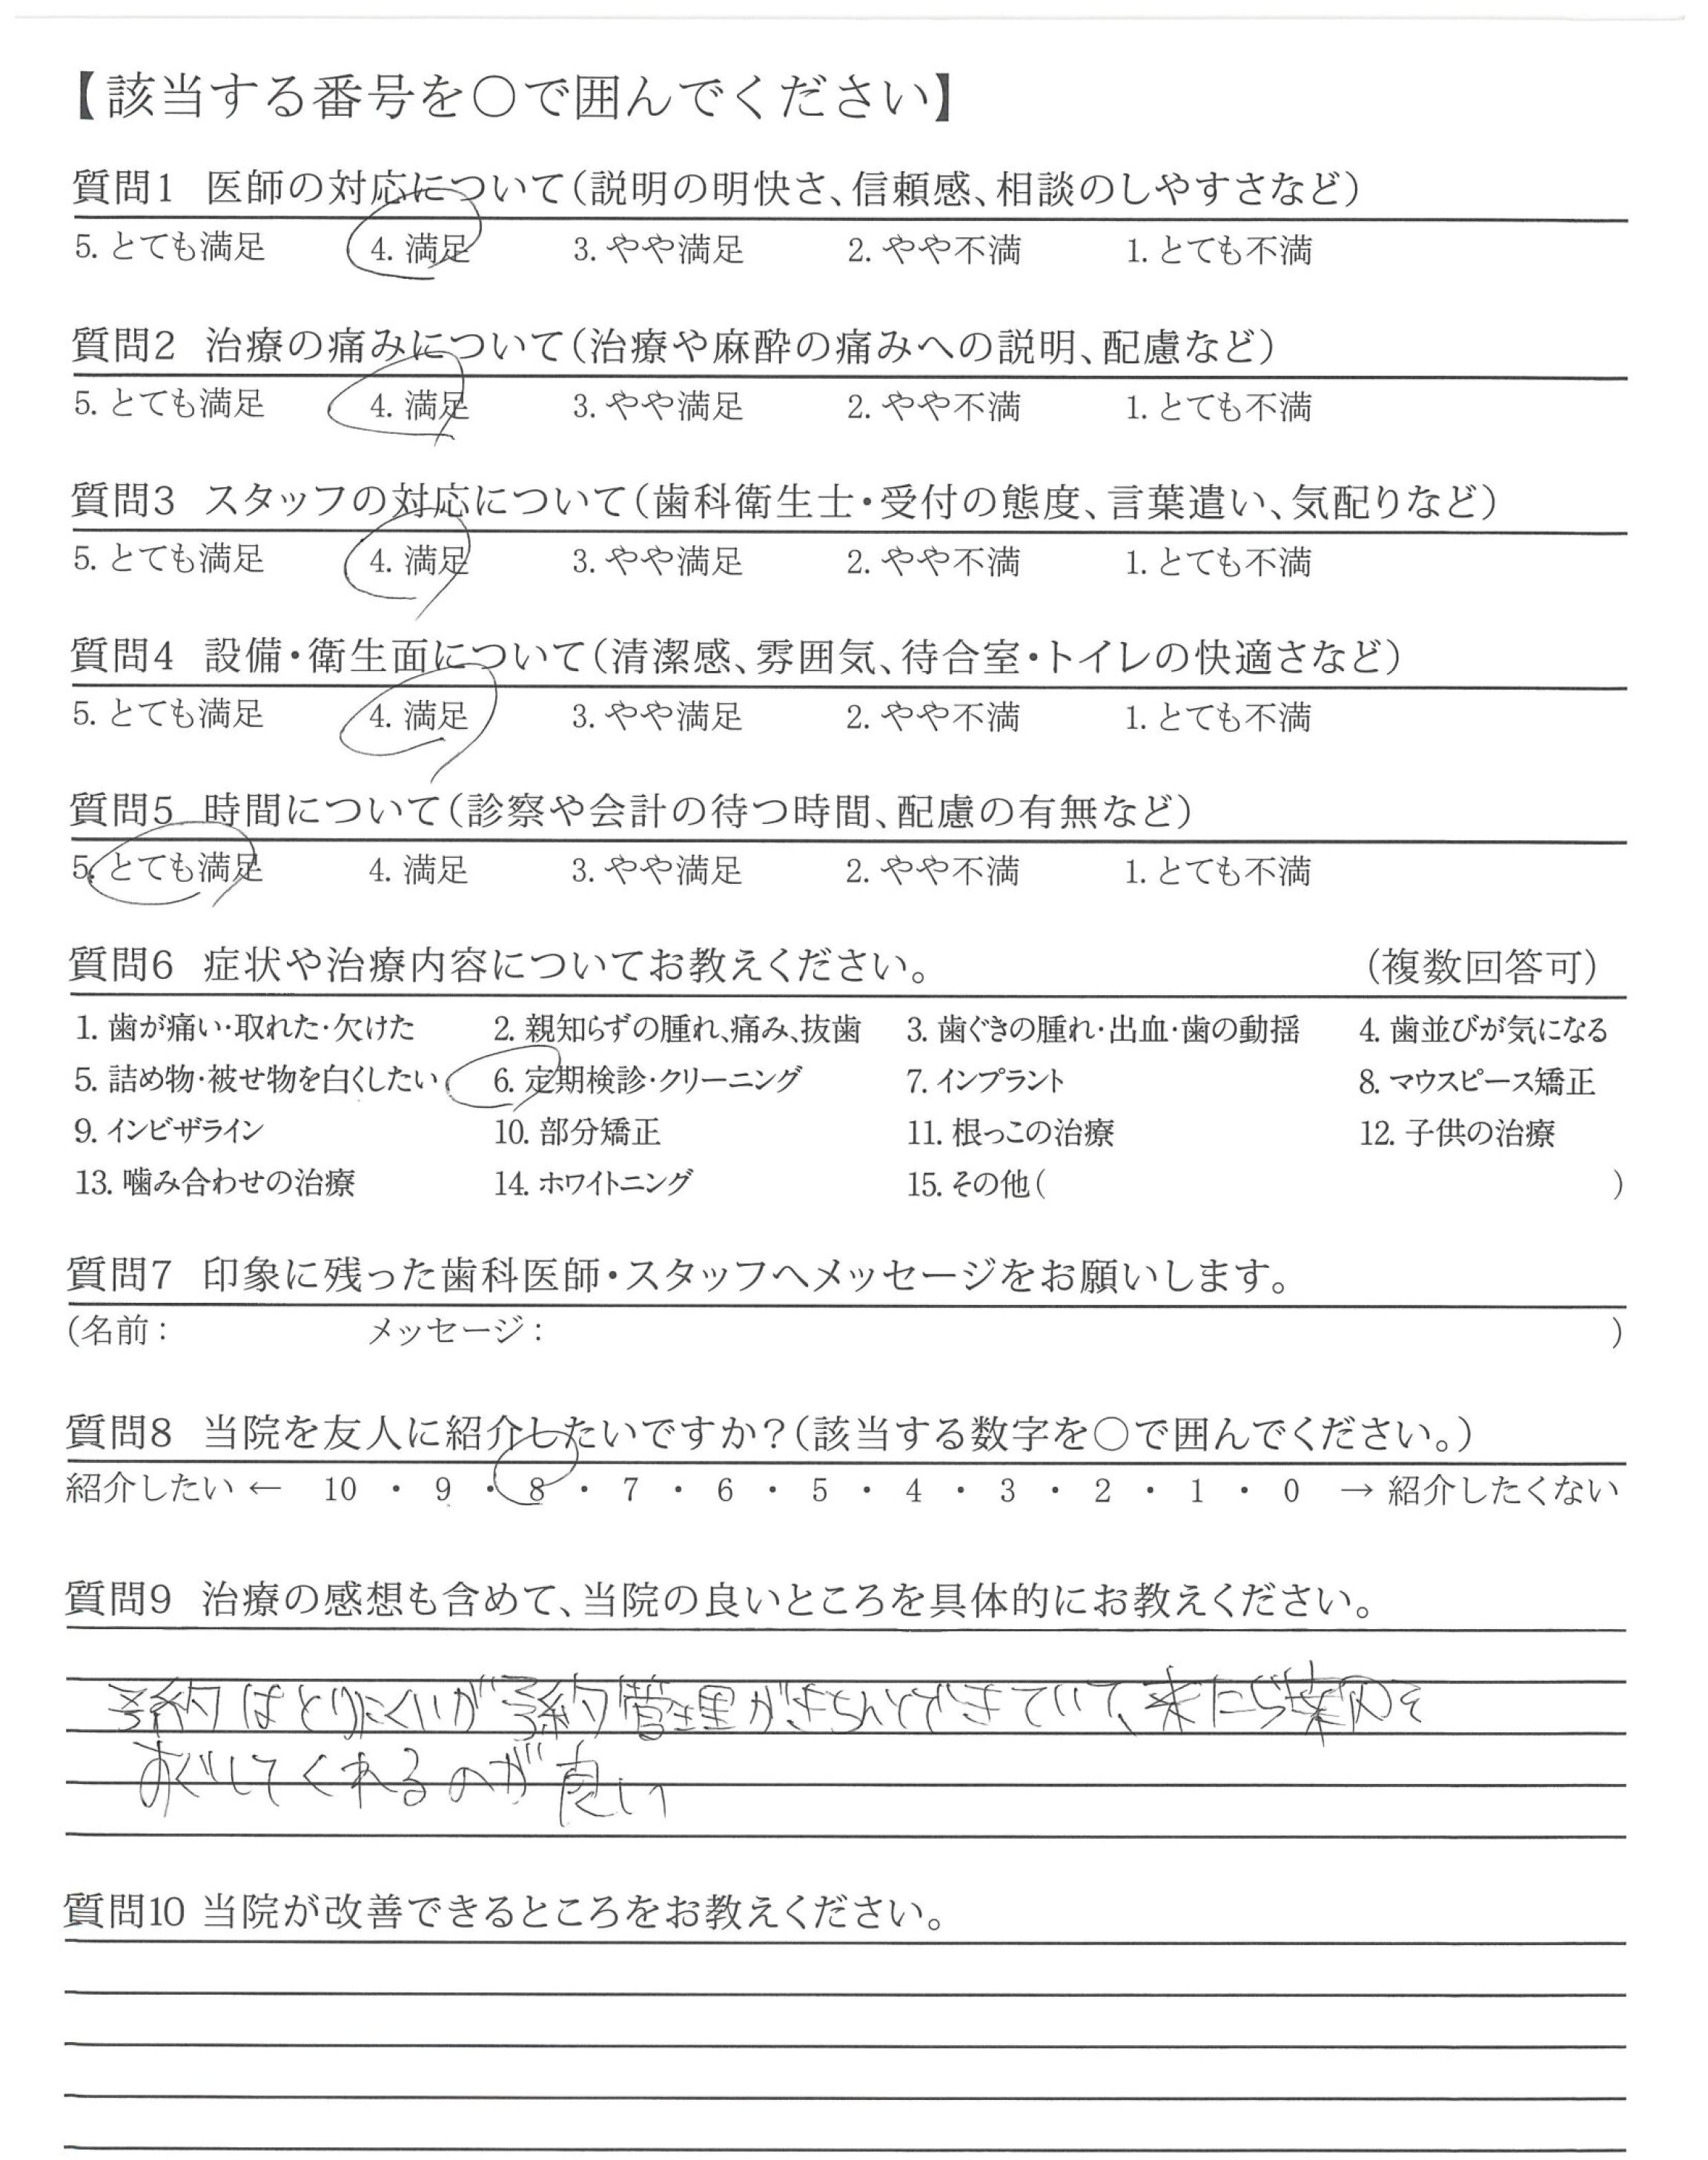 【該当する番号を○で囲んでください】
質問1 医師の対応について（説明の明快さ、信頼感、相談のしやすさなど）
5. とても満足 4. 満足 3. やや満足 2. やや不満 1. とても不満
質問2 治療の痛みについて（治療や麻酔の痛みへの説明、配慮など）
5. とても満足 4. 満足 3. やや満足 2. やや不満 1. とても不満
質問3 スタッフの対応について（歯科衛生士・受付の態度、言葉遣い、気配りなど）
5. とても満足 4. 満足 3. やや満足 2. やや不満 1. とても不満
質問4 設備・衛生面について（清潔感、雰囲気、待合室・トイレの快適さなど）
5. とても満足 4. 満足 3. やや満足 2. やや不満 1. とても不満
質問5 時間について（診察や会計の待つ時間、配慮の有無など）
5. とても満足 4. 満足 3. やや満足 2. やや不満 1. とても不満
質問6 症状や治療内容についてお教えください。 （複数回答可）
1. 歯が痛い・取れた・欠けた 2. 親知らずの腫れ、痛み、抜歯 3. 歯ぐきの腫れ・出血・歯の動揺 4. 歯並びが気になる
5. 詰め物・被せ物を白くしたい 6. 定期検診・クリーニング 7. インプラント 8. マウスピース矯正
9. インビザライン 10. 部分矯正 11. 根っこの治療 12. 子供の治療
13. 噛み合わせの治療 14. ホワイトニング 15. その他（ ）
質問7 印象に残った歯科医師・スタッフへメッセージをお願いします。
（名前： メッセージ： ）
質問8 当院を友人に紹介したいですか？（該当する数字を○で囲んでください。）
紹介したい ← 10 ・ 9 ・ 8 ・ 7 ・ 6 ・ 5 ・ 4 ・ 3 ・ 2 ・ 1 ・ 0 → 紹介したくない
質問9 治療の感想も含めて、当院の良いところを具体的にお教えください。
予約はとりにくいが予約管理がきちんとできていて、来たら案内を
すぐしてくれるのが良い
質問10 当院が改善できるところをお教えください。